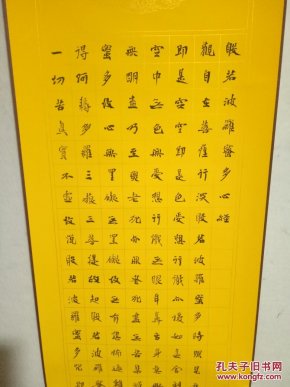 般若波羅蜜多心經
觀自在菩薩行深般若波羅蜜多時照見
即是空空即是色受想行識亦復如是舍利
空中無色無受想行識無眼耳鼻舌身意
無明盡乃至無老死亦無老死盡無苦集
蜜多故心無罣礙無罣礙故無有恐怖遠離
得阿耨多羅三藐三菩提故知般若波羅
一切苦真實不虛故說般若波羅蜜多咒即
孔夫子旧书网